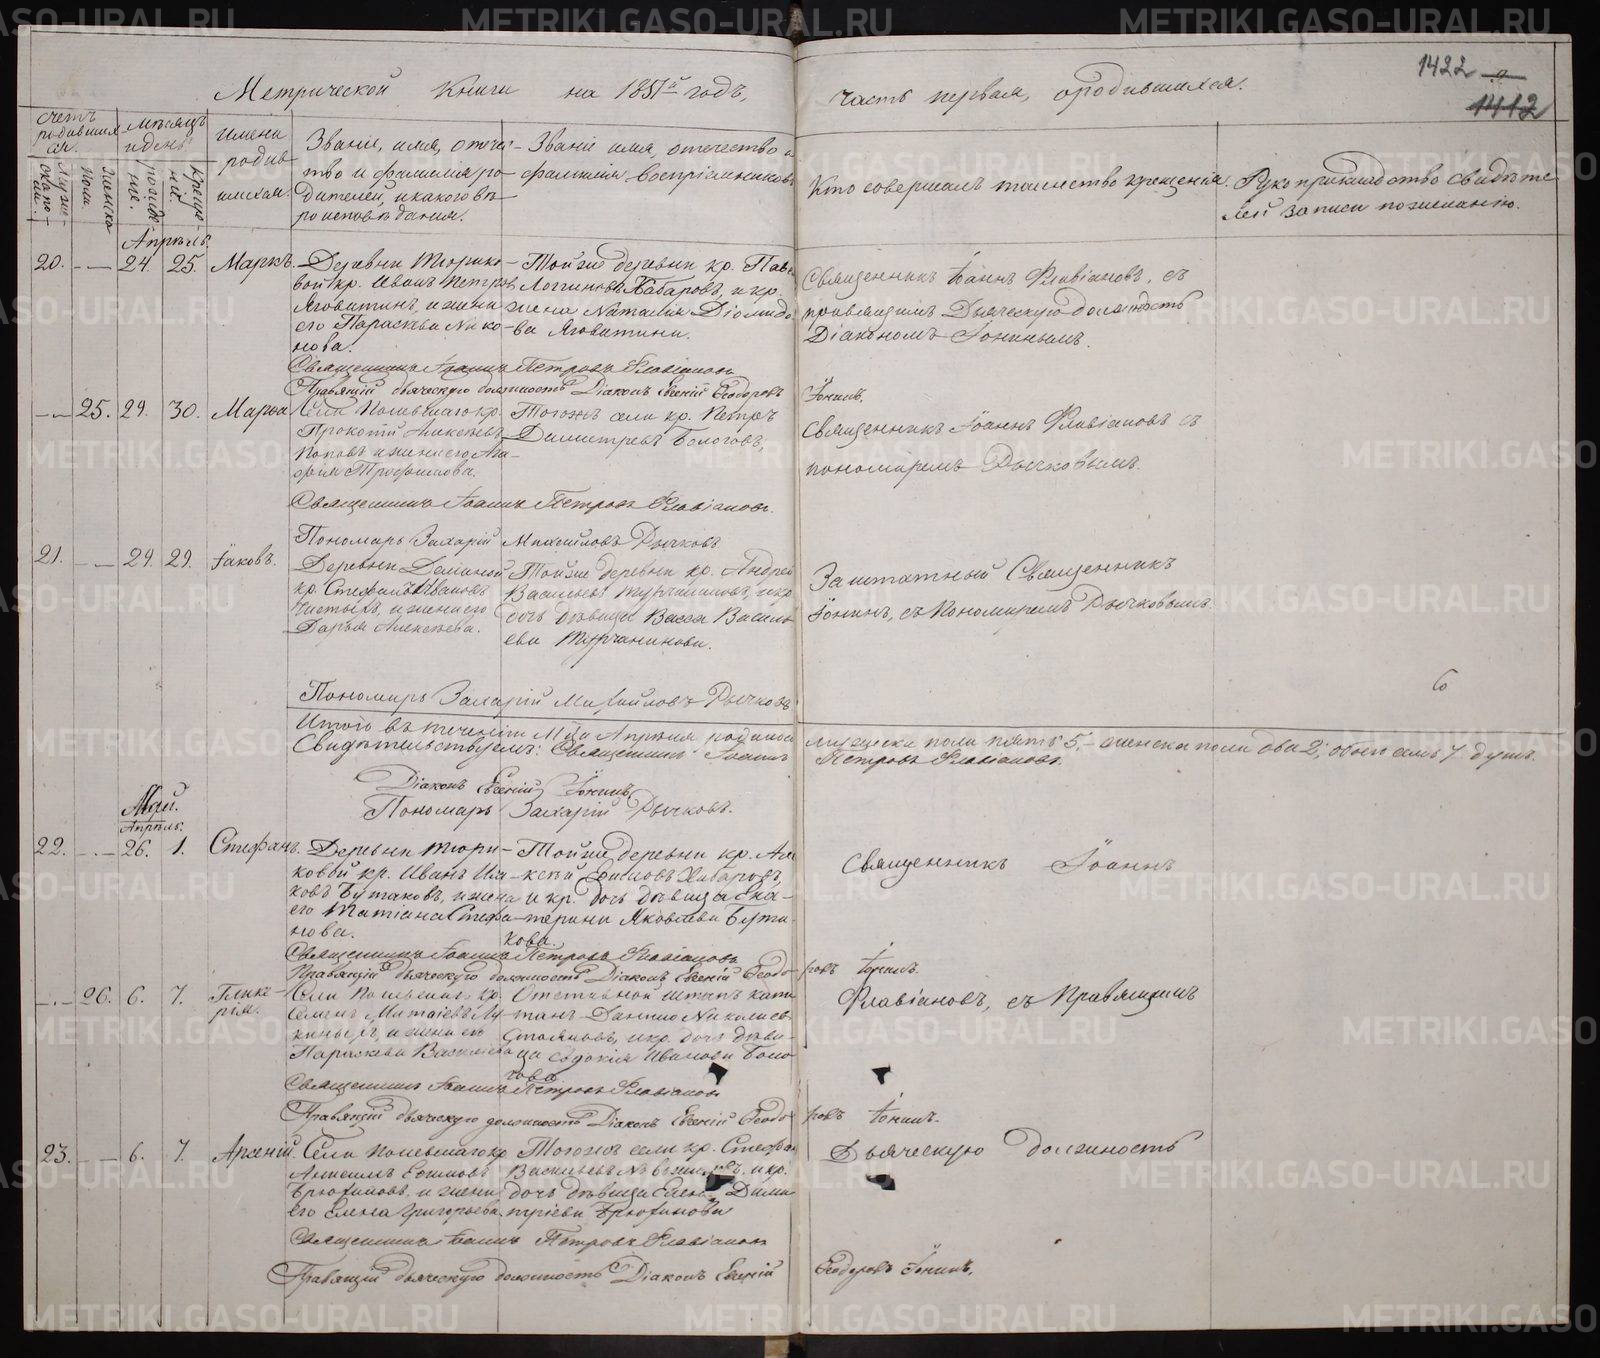 Метрической Книги на 1851й годъ,
часть первая, о родившихся.
1422
1412
Счетъ родившихся.
Мужеска полу.
Женска полу.
Мѣсяцъ и день.
рожденія.
крещенія.
Имена родившихся.
Званіе, имя, отечество и фамилія родителей, и какого вѣроисповѣданія.
Званіе имя, отечество и фамилія воспріемниковъ
Кто совершалъ таинство крещенія.
Рукоприкладство свидѣтелей записи по желанію.
Апрѣль.
20. — — 24. 25. Маркъ.
Деревни
вой кр. Иванъ Петровъ
Яговитинъ, и жена
его Параскева Нико-
нова.
Той же деревни кр. Паве
Логгиновъ Хабаровъ, и кр.
жена Наталія Діомидо-
ва Яговитина.
Священникъ Іоаннъ Флавіановъ, съ
правящимъ Дьяческую должность
Діакономъ Іонинымъ.
Священникъ Іоаннъ Петровъ Флавіановъ
Правящій дьяческую должность Діаконъ Евгеній Ѳеодоровъ
Іонинъ.
— — 25. 29. 30. Марѳа
Села кр.
Прокопій Алексѣевъ
Поповъ и жена его Ага-
фья Трофимова.
Тогожъ села кр. Петръ
Димитріевъ Бологовъ,
Священникъ Іоаннъ Флавіановъ съ
пономаремъ Рычковымъ.
Священникъ Іоаннъ Петровъ Флавіановъ.
Пономарь Захарій Михайловъ Рычковъ
21. — — 29. 29. Іаковъ.
Деревни
кр. Стефанъ Ивановъ
Чистыхъ, и жена его
Дарья Алексѣева.
Той же деревни кр. Андрей
Васильевъ Турчаниновъ, и кр.
дочь дѣвица Васса Василь
ева Турчанинова.
Заштатный Священникъ
Іонинъ, съ Пономаремъ Рычковымъ.
Пономарь Захарій Михайловъ Рычковъ
Итого въ теченіи М-ца Апрѣля родилось
мужеска пола пять 5, — женска пола два 2, обоего семь 7 душъ.
Свидѣтельствуемъ: Священникъ Іоаннъ
Петровъ Флавіановъ.
Діаконъ Евгеній Іонинъ
Пономарь Захарій Рычковъ.
Май.
Апрѣль.
22. — — 26. 1. Стефанъ.
Деревни Тюри-
ковой кр. Иванъ Иа-
ковъ Бутаковъ, и жена
его Татіана Стефа-
нова.
Той же деревни кр. Але
ксѣй Хабаровъ,
и кр. дочь дѣвица Ека-
терина Яковлева Бута-
кова.
Священникъ Іоаннъ
Священникъ Іоаннъ Петровъ Флавіановъ
Правящій дьяческую должность Діаконъ Евгеній Ѳеодо-
ровъ Іонинъ.
— — 26. 6. 7. Глике-
рія.
Села кр.
Семенъ Матвіевъ
и жена его
Параскева Васильева
Отставной штапъ капи
танъ Даніилъ Николаев
Стояновъ, и кр. дочь дѣви-
ца Евдокія Иванова Боло
гова
Флавіановъ, съ Правящимъ
Священникъ Іоаннъ Петровъ Флавіановъ
Правящій дьяческую должность Діаконъ Евгеній Ѳеодо
ровъ Іонинъ.
23. — — 6. 7. Арсеній
Села кр.
Ефимовъ
Брюхановъ, и жена
его Елена Григорьева.
Тогожъ села кр. Стефан
Васильевъ и кр.
дочь дѣвица Елена Дими
тріева Брюханова
Дьяческую должность
Священникъ Іоаннъ Петровъ Флавіановъ
Правящій дьяческую должность Діаконъ Евгеній
Ѳеодоровъ Іонинъ.
METRIKI.GASO-URAL.RU